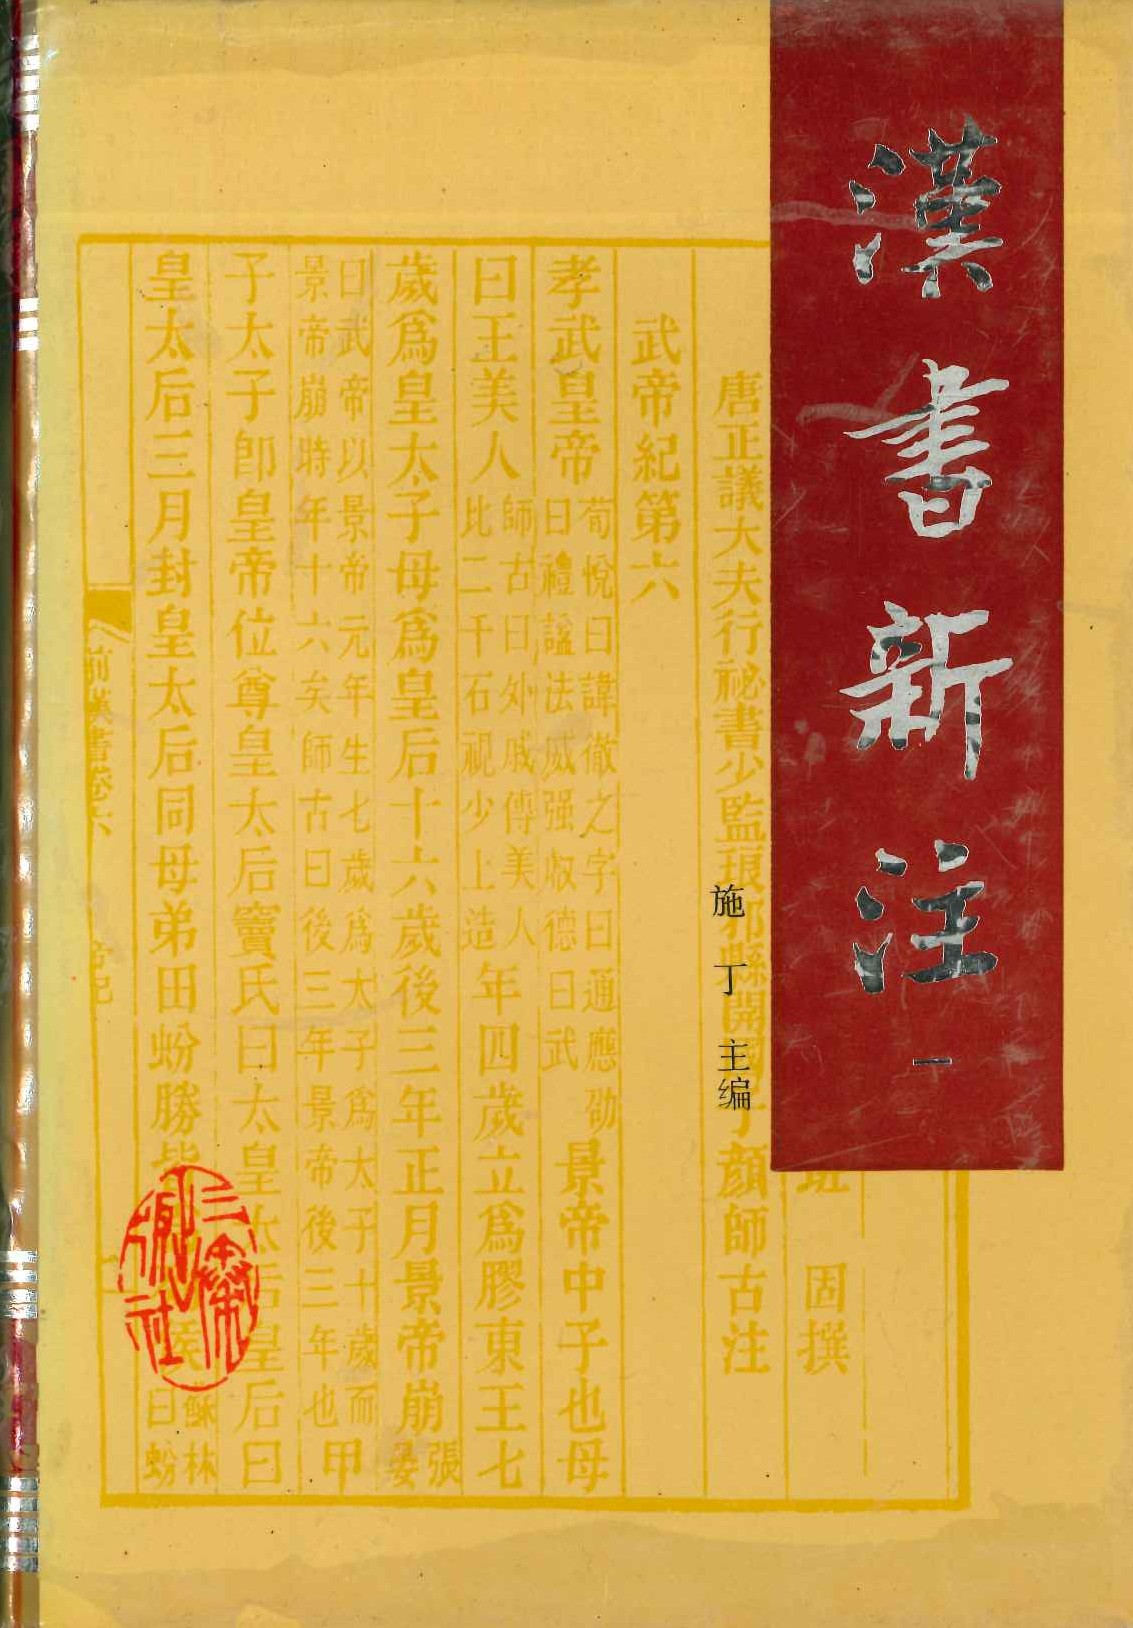 漢書新注
一
施丁主编
固撰
唐正議大夫行祕書少監琅邪縣開國子顏師古注
武帝紀第六
孝武皇帝
荀悅曰諱徹之字曰通應劭
曰禮諡法威强叡德曰武
景帝中子也母
曰王美人
師古曰外戚傳美人
比二千石視少上造
年四歲立爲膠東王七
歲爲皇太子母爲皇后十六歲後三年正月景帝崩
張
晏
曰武帝以景帝元年生七歲爲太子爲太子十歲而
景帝崩時年十六矣師古曰後三年景帝後三年也
甲
子太子卽皇帝位尊皇太后竇氏曰太皇太后皇后曰
皇太后三月封皇太后同母弟田蚡勝皆
侯
蘇林
曰蚡
前漢書卷六
帝紀
三秦
社